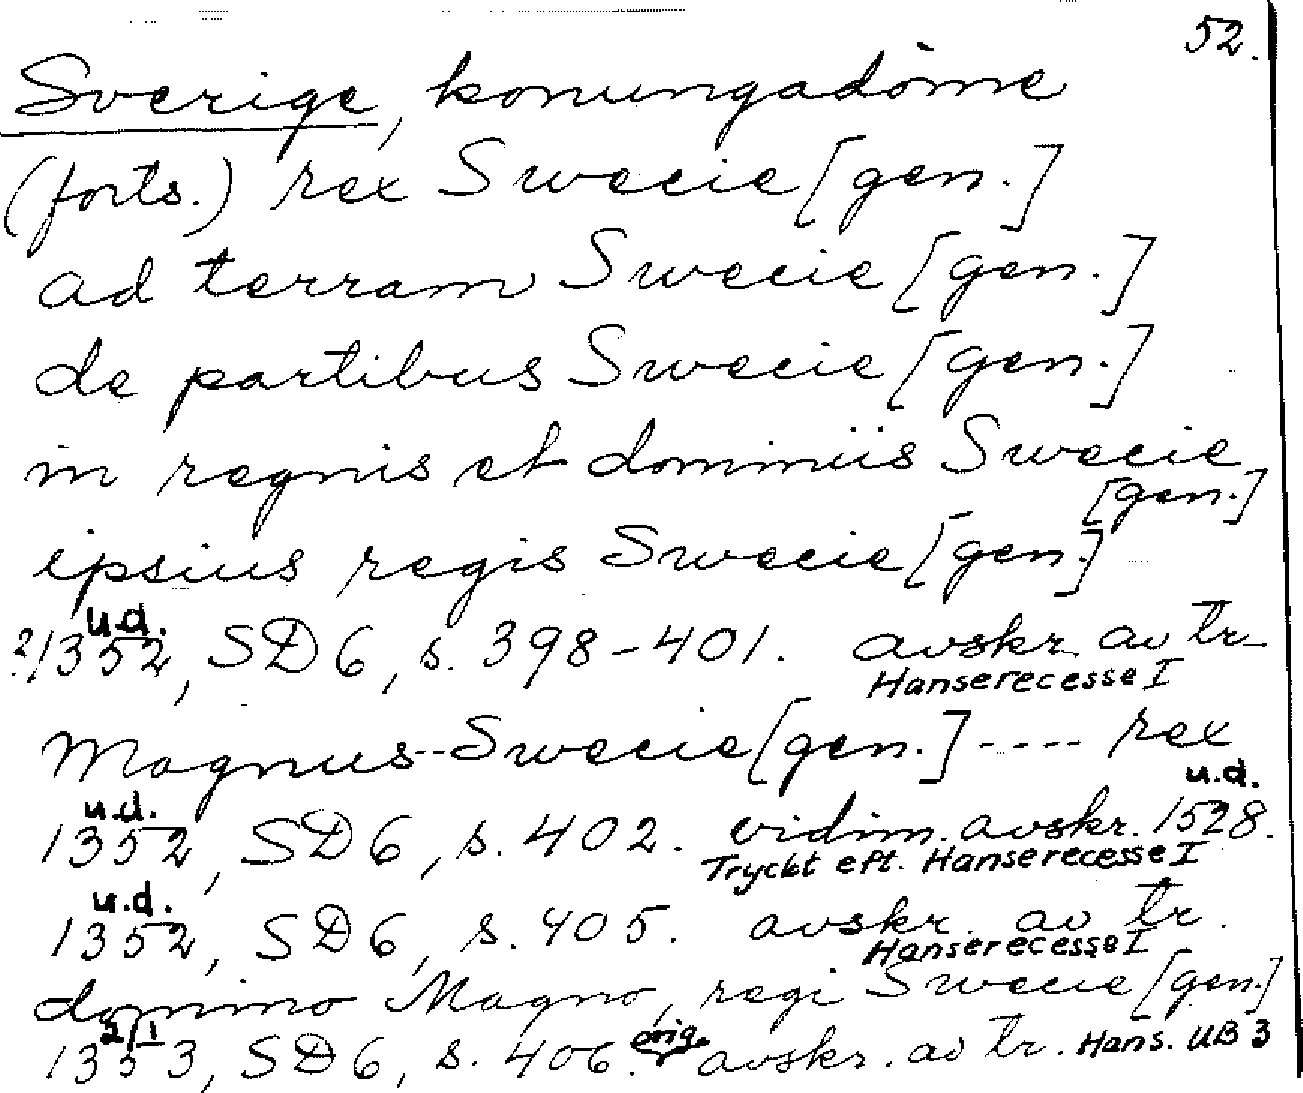 52.
Sverige, konungadöme
(forts.) rex Swecie [gen.]
ad terram Swecie [gen.]
de partibus Swecie [gen.]
in regnis et dominiis Swecie
[gen.]
ipsius regis Swecie [gen.]
u.d.
?/1352, SD 6, s. 398-401. avskr. av tr.
Hanserecesse I
Magnus -- Swecie [gen.] ---- rex
u.d. u.d.
1352, SD 6, s. 402. vidim. avskr. 1528.
Tryckt eft. Hanserecesse I
u.d.
1352, SD 6, s. 405. avskr. av tr.
Hanserecesse I
domino Magno, regi Swecie [gen.]
2/1 orig.
1353, SD 6, s. 406. avskr. av tr. Hans. UB 3